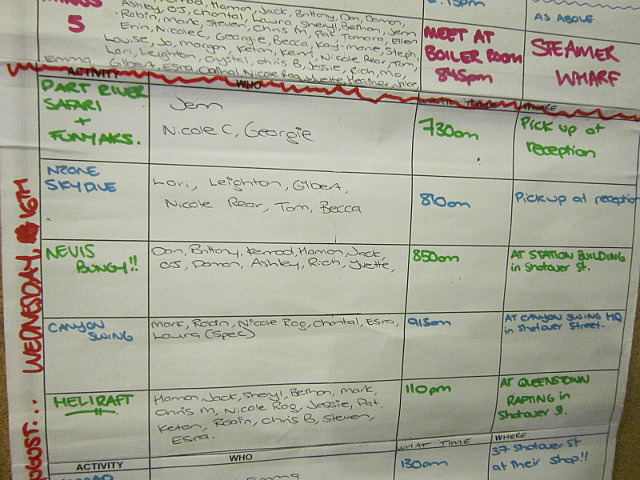 Hamon, Jack, Brittany, Dan, Damon,
Ashley, OJ, Chantal, Laura
Robin, mark, Steven, Chris M, Pat, Tamara, Ellen
Erin, Nicole C, George, Becca, Kay-marie, Steph
Louise, Jo, morgan, Ketan, Kenrod, Nicole Rear, Tom,
Lori, Leighton, Krystal, chris B, Jessie, Rich, mo,
Emma
5
MEET AT
BOILER ROOM
845pm
AS ABOVE
STEAMER
WHARF
ACTIVITY WHO WHERE
DART RIVER
SAFARI
+
FUNYAKS.
Jenn
Nicole C, Georgie
730am
Pick up at
reception
NZONE
SKYDIVE
Lori, Leighton, Gilbert,
Nicole Rear, Tom, Becca
810am
Pick up at reception
NEVIS
BUNGY!!
Dan, Brittany, Kenrod, Hamon, Jack,
OJ, Damon, Ashley, Rich, Yvette,
850am
AT STATION BUILDING
in Shotover St.
CANYON
SWING
mark, Robin, Nicole Rog, Chantal, Esra,
Laura (Spec)
915am
AT CANYON SWING HQ
in Shotover Street.
HELIRAFT
Hamon, Jack, Sheryl, Bethan, mark
Chris M, Nicole Rog, Jessie, Pat,
Ketan, Robin, Chris B, Steven,
Esra.
110pm
AT QUEENSTOWN
RAFTING in
Shotover St.
ACTIVITY WHO WHAT TIME WHERE
Emma
130pm
37 Shotover St
at their shop!!
AUGUST... WEDNESDAY, 16TH